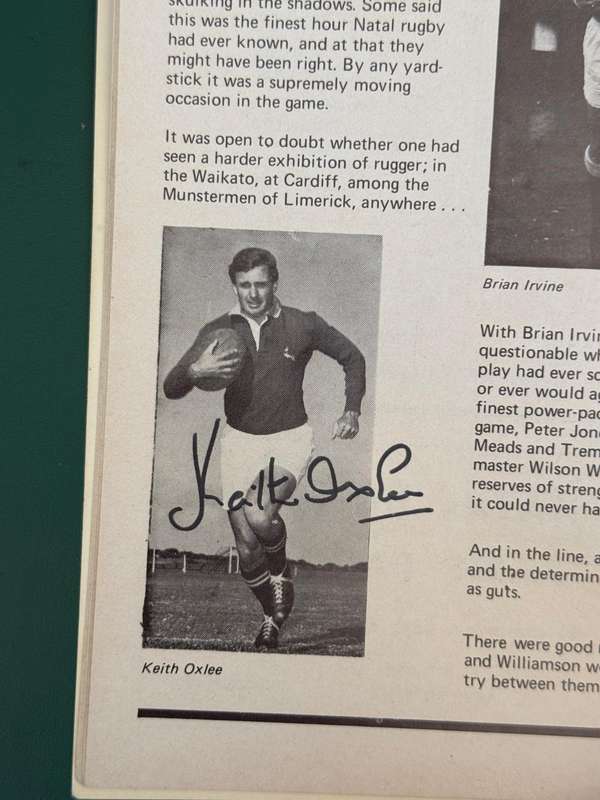 skulking in the shadows. Some said
this was the finest hour Natal rugby
had ever known, and at that they
might have been right. By any yard-
stick it was a supremely moving
occasion in the game.
It was open to doubt whether one had
seen a harder exhibition of rugger; in
the Waikato, at Cardiff, among the
Munstermen of Limerick, anywhere . . .
Keith Oxlee
Keith Oxlee
Brian Irvine
With Brian Irvi
questionable w
play had ever s
or ever would a
finest power-pa
game, Peter Jon
Meads and Trem
master Wilson W
reserves of streng
it could never ha
And in the line, a
and the determin
as guts.
There were good
and Williamson w
try between them